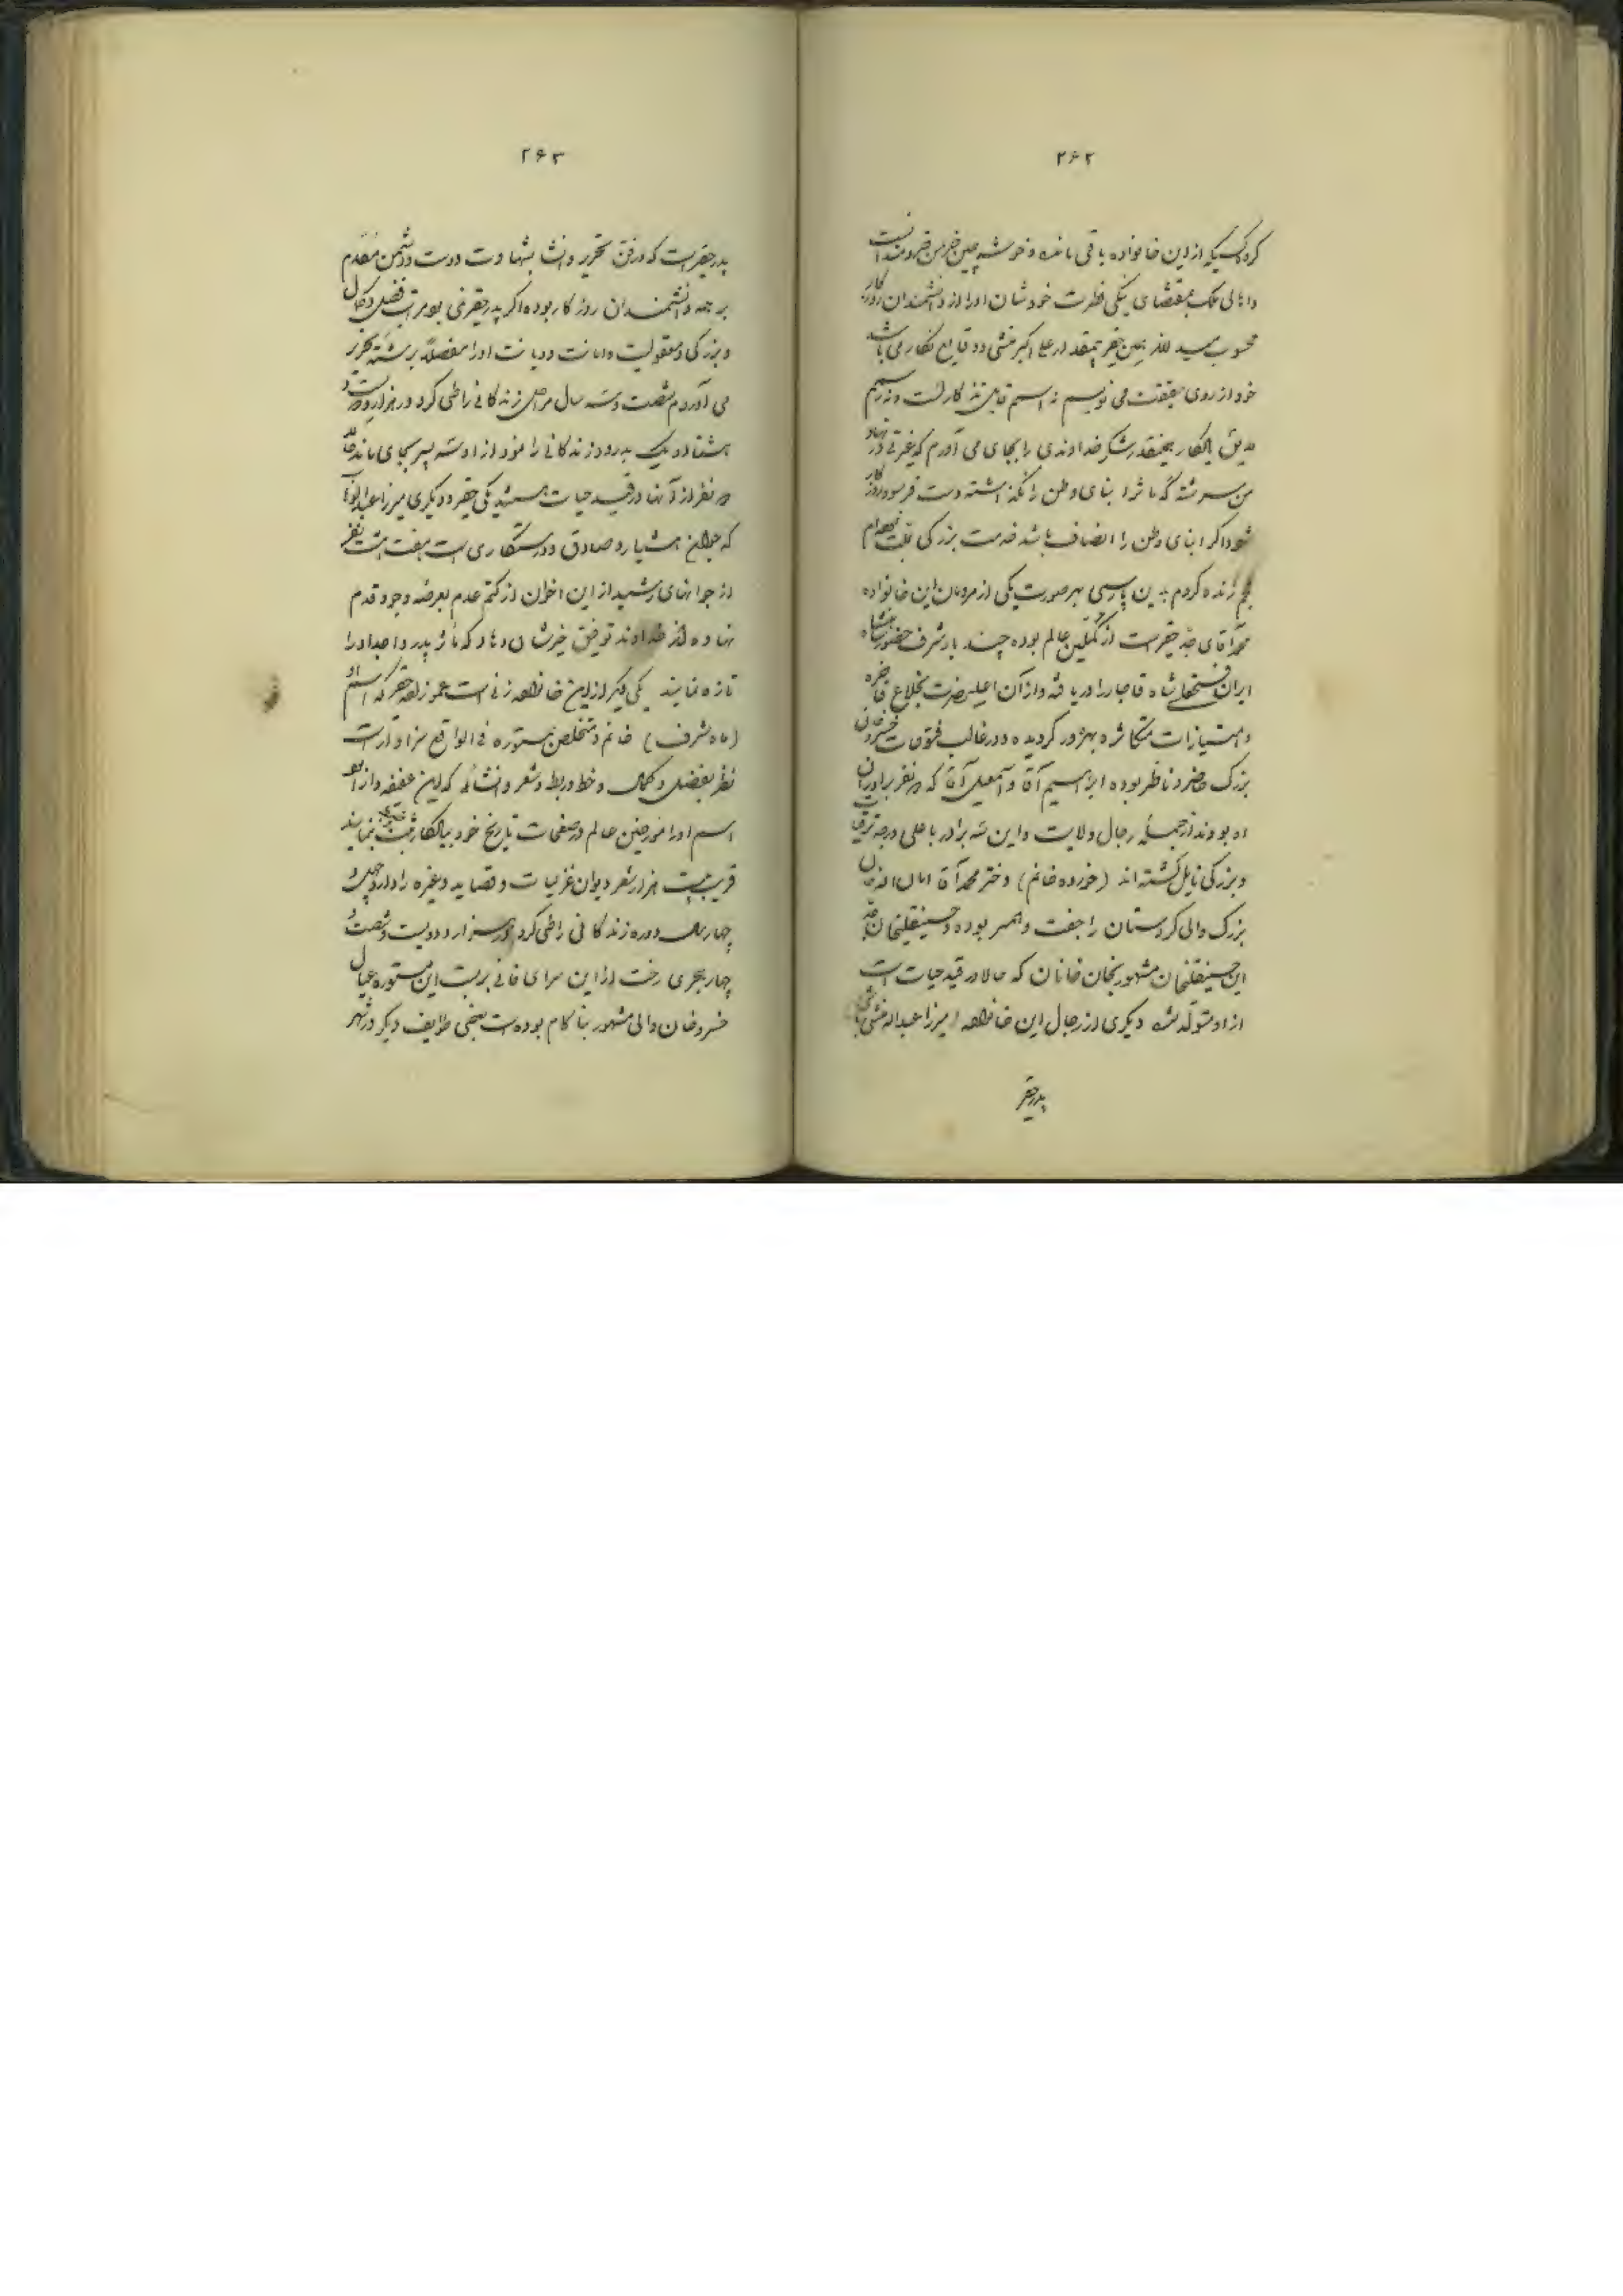 ۲۶۲
کرد کسیکه از این خانواده باقی مانده و خوشه چین خرمن خردمندانست
و اهالی ملک بمقتضای نیکی فطرت خودشان او را از دانشمندان روزگار
محسوب همین حقیر بیمقدار علی اکبر منشی وقایع نگار می باشد
خود از روی حقیقت می نویسم نه اسمم قابل تذکار است و نه رسمم
شکر خداوندی را بجای می آورم که غیرتی در نهاد
من سرشته که مآثر ابنای وطن را نگذاشته دست فرسود روزگار
شود اگر ابنای وطن را انصاف باشد خدمت بزرگی
عجم زنده کردم بدین پارسی بهر صورت یکی از مردمان این خانواده
محمد آقای جد حقیر است از عالم بوده چند بار شرف حضور شاهنشاه
ایران فتحعلی شاه قاجار را دریافته و از آن اعلیحضرت بخلاع فاخره
و امتیازات متکاثره بهره ور گردیده و در غالب فتوحات خسروخان
بزرگ حاضر و ناظر بوده ابراهیم آقا و اسمعیل آقا که دو نفر برادران
او بودند از جمله رجال ولایت و این سه برادر باعلی درجه ترقیات
و بزرگی نایل گشته اند (خورده خانم) دختر محمد آقا امان الله خان
بزرگ والی کردستان را جفت و همسر بوده و حسینقلیخان جد
این حسینقلیخان مشهور بخان خانان که حالا در قید حیات است
از او متولد شده دیگری از رجال این خانواده میرزا عبداله منشی باشی
پدر حقیر
۲۶۳
پدر حقیر است که در فن تحریر و انشا بشهادت دوست و دشمن مقدم
بر همه دانشمندان روزگار بوده اگر پدر حقیر نمی بود مراتب فضل و کمال
و بزرگی و معقولیت و امانت و دیانت او را مفصلاً برشته تحریر
می آوردم شصت و سه سال مراحل زندگانی را طی کرد در هزار و دویست و
هشتاد و یک بدرود زندگانی را نمود از او سه پسر بجای ماند حالا
دو نفر از آنها در قید حیات هستند یکی حقیر و دیگری میرزا
که جوان هشیار و صادق و درستکاری است هفت هشت نفر
از جوانهای رشید از این اخوان از کتم عدم بعرصه وجود قدم
نهاده اند خداوند توفیق خیرشان دهاد که مآثر پدر و اجداد را
تازه نمایند یکی دیگر از این خانواده زنی است عموزاده حقیر که اسم او
(ماه شرف) خانم و متخلص بمستوره فی الواقع سزاوار است
نظر بفضل و کمال و خط و ربط و شعر و انشائی که این عفیفه داراست
اسم او را مورخین عالم در صفحات تاریخ خود بیادگار ثبت نمایند
قریب بیست هزار شعر دیوان غزلیات و قصاید و غیره را دارد چهل و
چهار سال دوره زندگانی را طی کرد در هزار و دویست و شصت و
چهار هجری رخت از این سرای فانی بربست این مستوره عیال
خسروخان والی مشهور بناکام بوده است بعضی طوایف دیگر در شهر